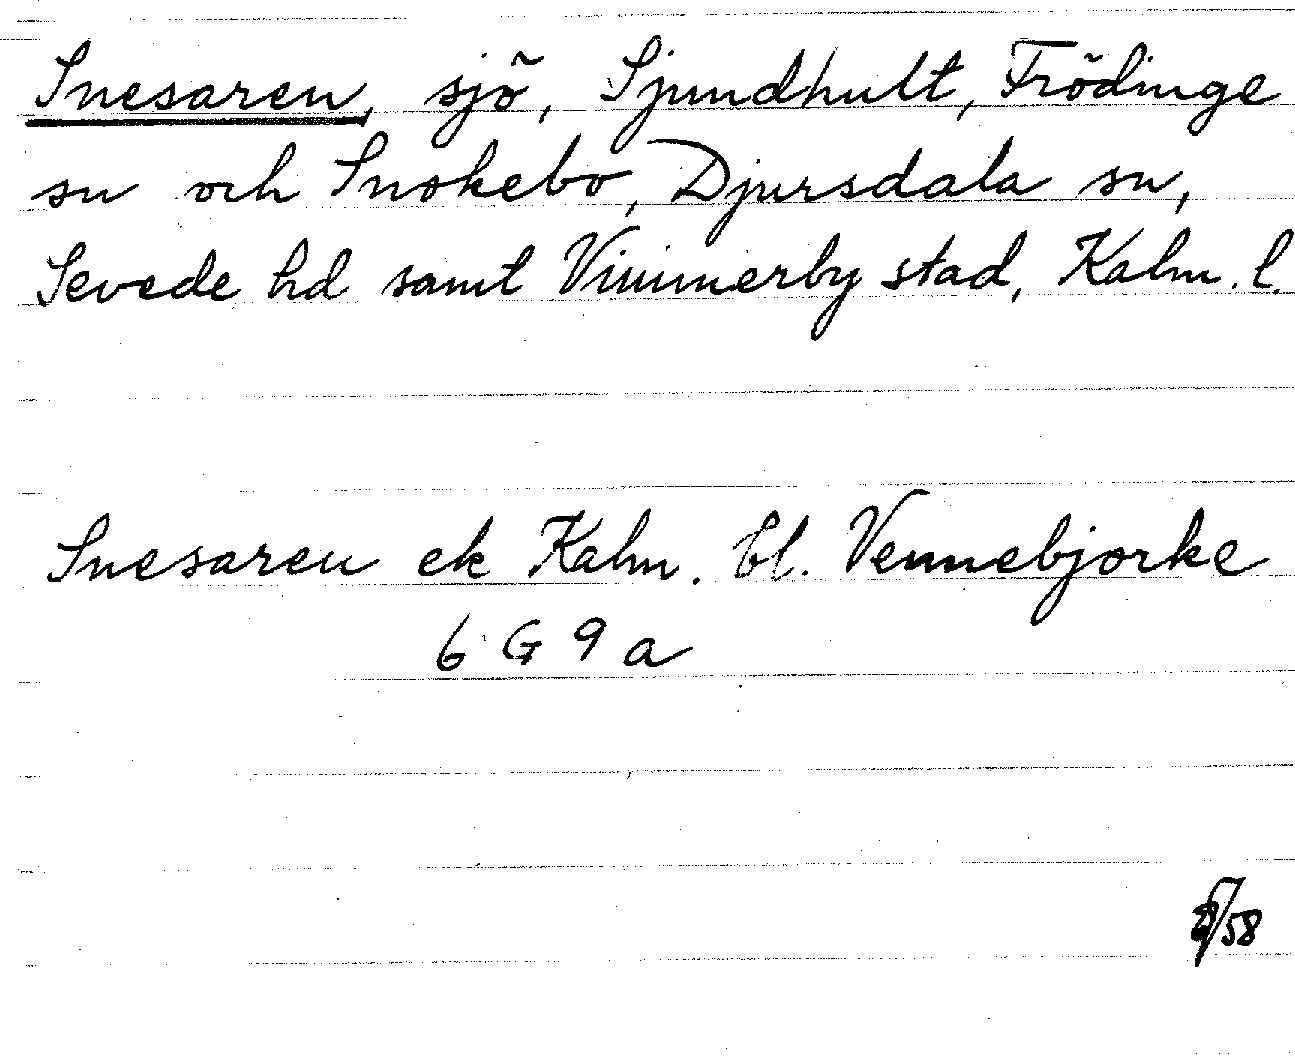 Snesaren, sjö, Sjundhult, Frödinge
sn och Snokebo, Djursdala sn,
Sevede hd samt Vimmerby stad, Kalm. l.
Snesaren ek Kalm. bl. Vennebjörke
6 G 9 a
/58